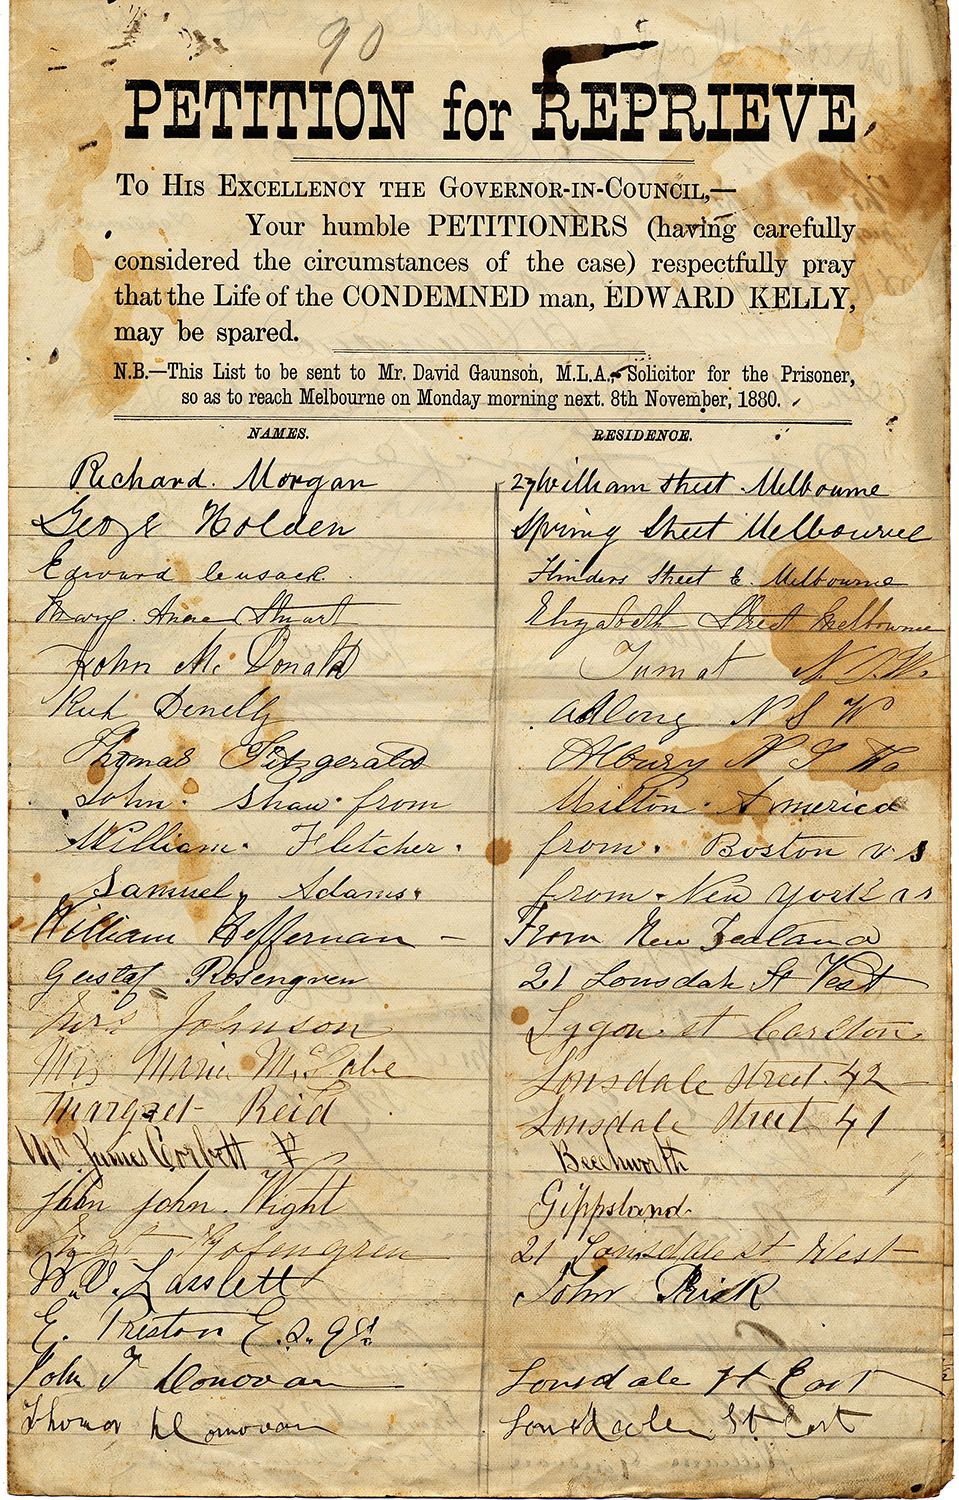 90
PETITION for REPRIEVE
TO HIS EXCELLENCY THE GOVERNOR-IN-COUNCIL,—
Your humble PETITIONERS (having carefully
considered the circumstances of the case) respectfully pray
that the Life of the CONDEMNED man, EDWARD KELLY,
may be spared.
N.B.—This List to be sent to Mr. David Gaunson, M.L.A., Solicitor for the Prisoner,
so as to reach Melbourne on Monday morning next. 8th November, 1880.
NAMES. RESIDENCE.
Richard. Morgan 27 William Street Melbourne
George Holden Spring Street Melbourne
Edward Cusack Flinders Street E. Melbourne
Mary Anne Stuart Elizabeth Street Melbourne
John Mc Donald Tumat N.S.W.
Denelly N S W
Thomas Fitzgerald Albury N S W
John. Shaw. from Milton. America
William. Fletcher. from. Boston
Samuel Adams. from. New York
William Heffernan – From New Zealand
Gustaf Rosengren 21 Lonsdale St West
Mrs Johnson Lygon. st Carlton
Mrs Marie McCabe Lonsdale Street. 42
Margret Reid Lonsdale Street 41
Mr James Corbett Beechworth
John. Wight Gippsland.
Rosengren 21 Lonsdale st West
Lasslett John
E. Preston
John T Donovan Lonsdale St East
Thomas Donovan Lonsdale St East